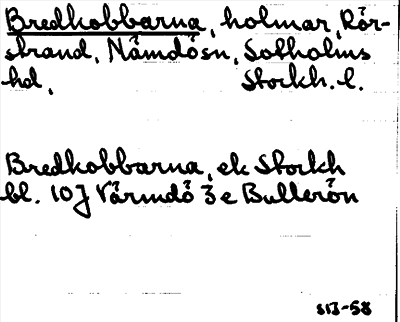 Bredkobbarna, holmar, Rör-
strand, Nämdö sn, Sotholms
hd, Stockh. l.
Bredkobbarna, ek Stockh
bl. 10J Värmdö 3e Bullerön
SIJ-58